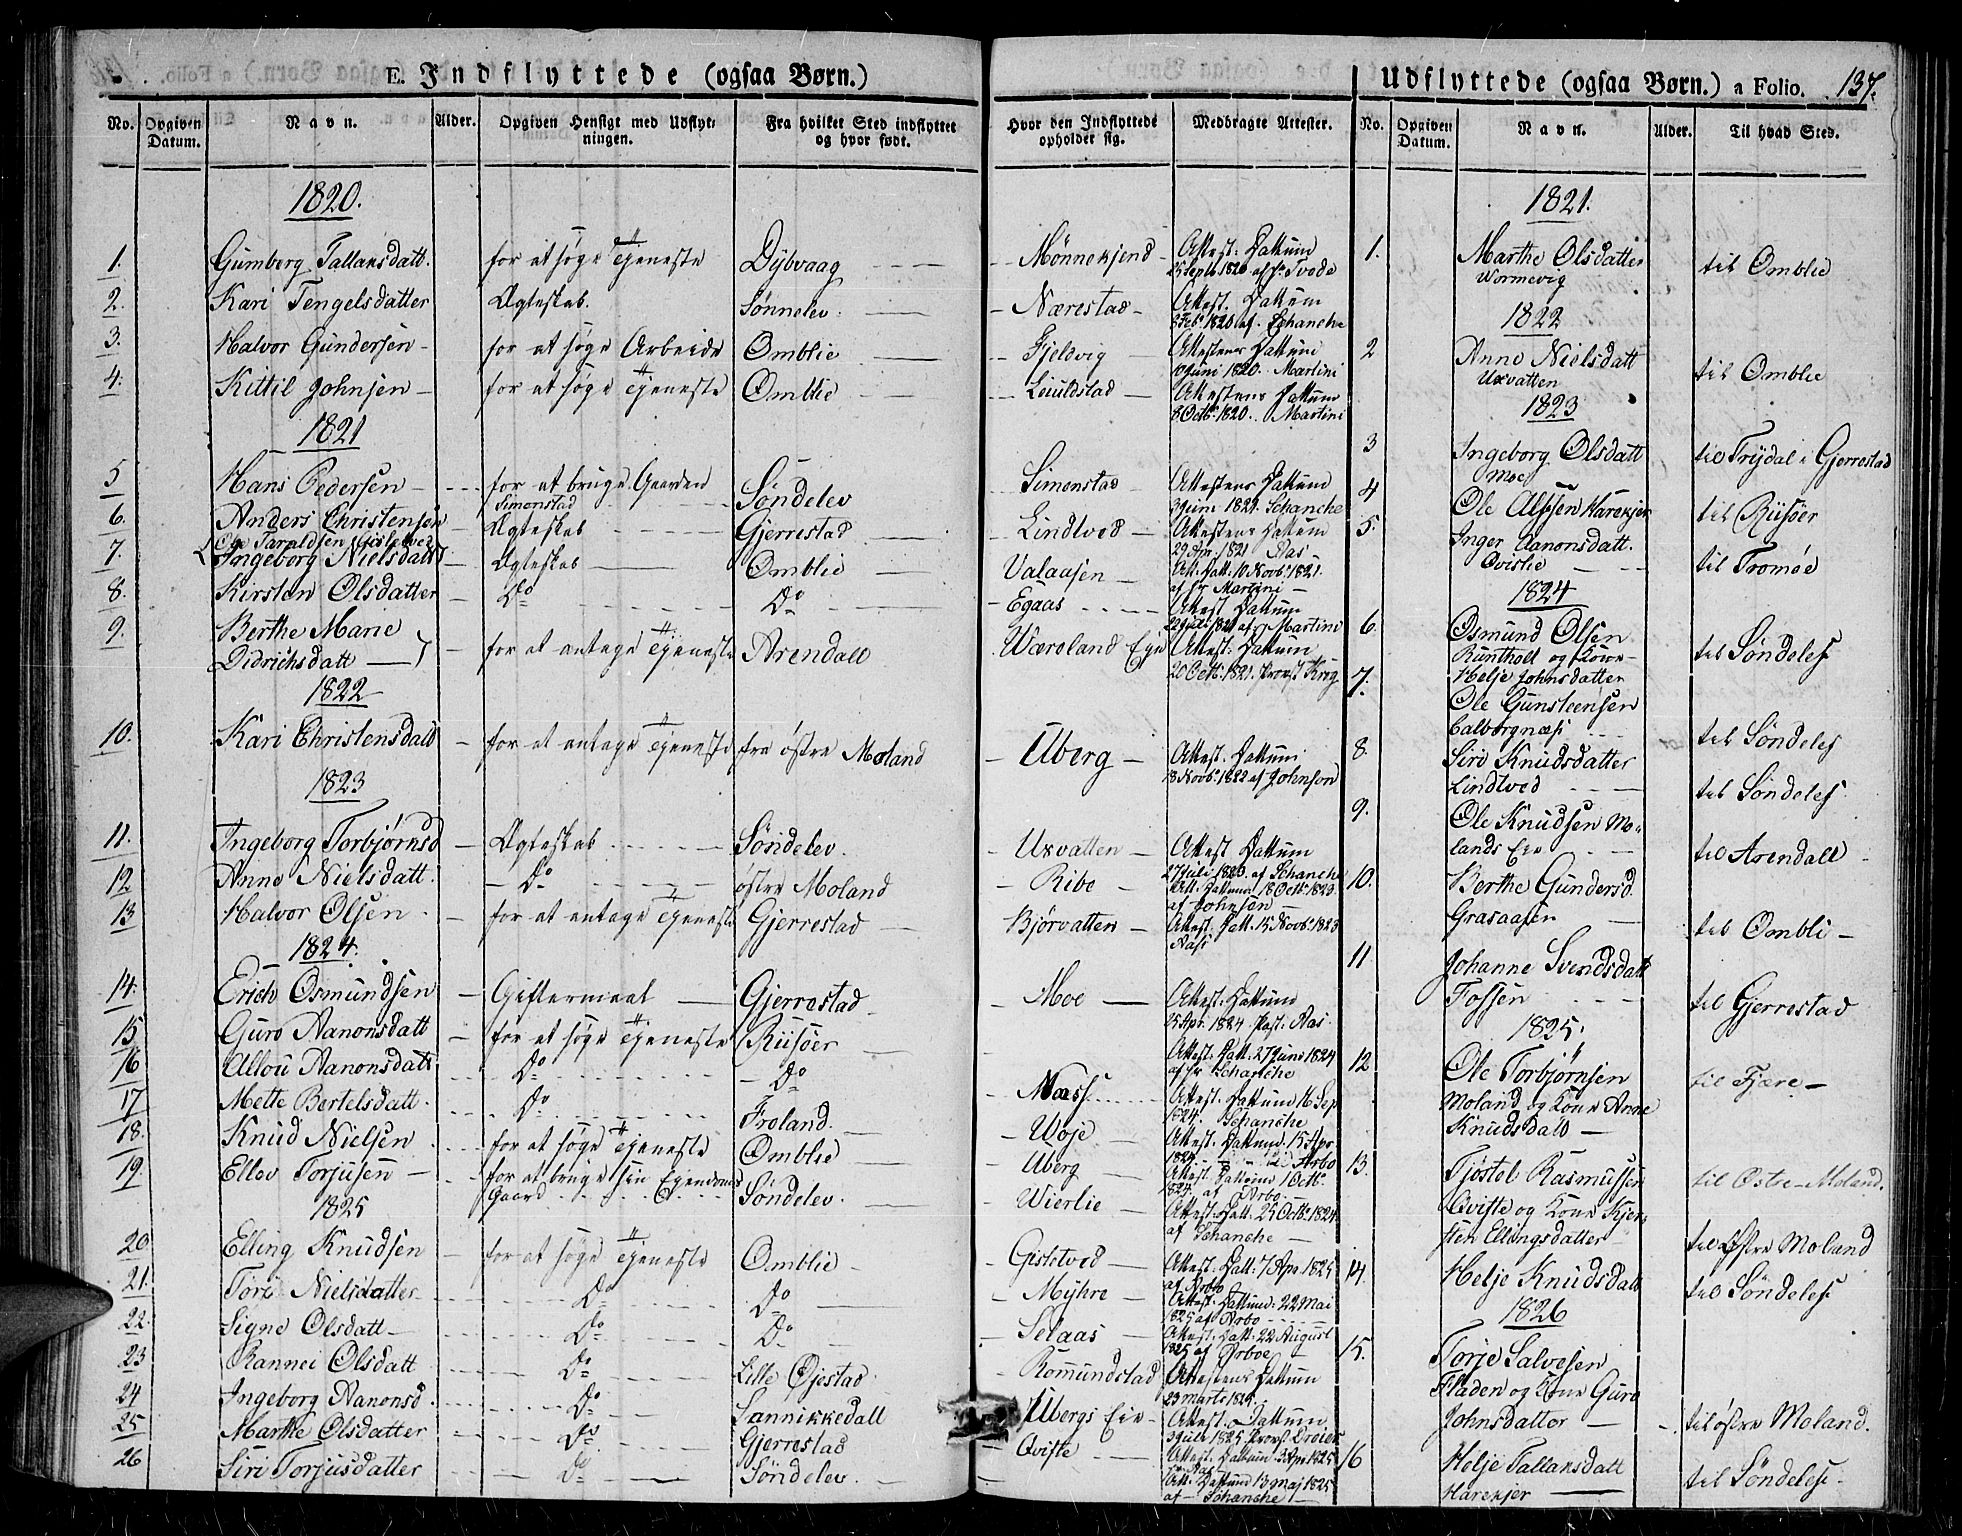 E. Indflyttede (ogsaa Børn.)
No. Opgiven Datum. Navn. Alder. Opgiven Hensigt med Udflytningen. Fra hvilket Sted indflyttet og hvor født.
1820.
1. Gumberg Tallaksdatt. for at søge Tjeneste Dybvaag
2. Kari Tengelsdatter Ægteskab. Sønnelev.
3. Halvor Gundersen for at søge Arbeide Omblie
4. Kittil Johnsen for at søge Tjeneste Omblie
1821
5 Hans Pedersen for at bruge Gaarden Simonstad Søndelev
6. Anders Christensen Ægteskab Gjerrestad
Ole Taraldsen
7. Ingeborg Nielsdatt Ægteskab Omblie
8. Kirsten Olsdatter Do Do
9. Berthe Marie
Didrichsdatt for at antage Tjeneste Arendall
1822
10. Kari Christensdatt for at antage Tjeneste fra østre Moland
1823
11. Ingeborg Torbjørnsd Ægteskab Søndelev.
12 Anne Nielsdatt. Do østre Moland
13 Halvor Olsen. for at antage Tjeneste Gjerrestad
1824.
14. Erich Osmundsen Giftermaal Gjerrestad
15. Guro Aanonsdatt for at søge Tjeneste Riisøer
16 Allou Aanonsdatt Do Do
17 Mette Bertelsdatt. Do Froland.
18. Knud Nielsen for at søge Tjeneste Omblie
19. Ellev Torjusen for at bruge sin Eiendoms Gaard Søndelev.
1825
20 Elling Knudsen for at søge Tjeneste Omblie
21. Tore Nielsdatter Do Do
22. Signe Olsdatt Do Do
23 Rannei Olsdatt Do Lille Øjestad
24 Ingeborg Aanonsd. Do Sannikkedall
25 Marthe Olsdatter Do Gjerrestad
26 Siri Torjusdatter Do Søndelev.
Hvor den Indflyttede opholder sig. Medbragte Attester.
Mønnekjend Attest: Dattum
25 Septr 1820 af Hr Tvede
Nærestad Attest. Dattum
3 Febr. 1820 af. Schanche
Fjelvig Attestens Dattum
Juni 1820. Martini
Leuildstad Attestens Dattum
8 Octbr. 1820. Martini
Simenstad Attestens Dattum
3 Juni 1821. Schanche
Lindtved Attestens Dattum
29 Apr. 1821 Aas
Valaasen Att. Datt. 10 Novbr. 1821.
af Hr Martini
Egaas Attest Dattum
22 Juli 1821 af Hr Martini
Wæroland Eje Attest: Dattum
20 Octb. 1821. Provst Krog
Uberg Attest. Dattum
18 Novbr. 1822 af Johnson
Uxvatten Attest Dattum
27 Juli 1823. af Schanche
Ribe Att. Dattum 18 Octb. 1823
af Johnson
Bjørvatten Attest. Datt. 15 Novbr. 1823
Aas
Moe Attest: Dattum
25 Apr: 1824. Past. Aas.
Attest. Datt. 27 Juni 1824
af Hr Schanche
Næss. Attest. Dattum 16 Sep
1824. Schanche
Woje Attest. Dattum. 15 Apr
1824 Arbo
Uberg Attest. Dattum 1 Octb.
1824. af Arbo
Wierlie Attest. Datt. 25 Octb. 1824.
af Schanche
Gislevod Attest. Datt. 7 Apr. 1825
af Arbo
Myhre Attest. Dattum. 22 Mai
1825 af Arbo
Selaas Attest. Datt. 22 August
1825 af Arboe
Romundstad Attestens Dattum
23 Marts 1825.
Ubergs Eie Attest. Dattum
3 Juli 1825 Provst Dreier
Qviste Attest. Dattum 3 Apr 1825
Att. Dattum 13 Maj 1825
af Schanche
Udflyttede (ogsaa Børn.) a Folio. 137.
No. Opgiven Datum. Navn. Alder. Til hvad Sted.
1821.
1. Marthe Olsdatter
Wormevig til Omblie
1822
2 Anne Nielsdatt
Uxvatten til Omblie
1823
3 Ingeborg Olsdatt
Moe til Trydal i Gjerrestad
4 Ole Alfsen Harekjer til Riisøer
5. Inger Aanonsdatt.
Qvislie til Tromøe
1824
6. Osmund Olsen
Runtholt og Kone
Helje Johnsdatter til Søndelef
7. Ole Gunsteensen
Calborgnæs til Søndelef
8. Siro Knudsdatter
Lindtved til Søndelef
9. Ole Knudsen Mo-
lands Eie til Arendall
10. Berthe Gundersd.
Grasaasen til Ombli
11 Johanne Svendsdatt
Fossen til Gjerrestad
1825.
12 Ole Torbjørnsen
Moland og Kone Anne
Knudsdatt til Fjære
13. Tjøstel Rasmussen
Qviste og Kone Kjer-
sten Ellingsdatter til Østre Moland.
til Østre Moland
14. Helje Knudsdatt til Søndelef
1826
15. Torje Salvesen
Fladen og Kone Guro
Johnsdatter til østre Moland.
16 Helje Tallaksdatt
Harekjer til Søndelef